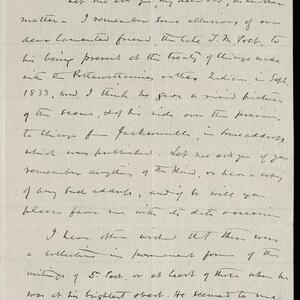 let me ask you, my dear Sir, on another
matter. I remember some allusions of our
dear lamented friend, the late T. M. Post, to
his being present at the treaty of Chicago made
with the Pottawattamies & other Indians, in Sept.
1833, and I think he gave a vivid picture
of the scene, & of his ride over the prairies
to Chicago from Jacksonville, in some address
which was published. Let me ask you if you
remember anything of the kind, or have a copy
of any such address, and if so will you
please favor me with its date & occasion
I have often wished that there was
a collection in permanent form of the
writings of Dr Post or at least of those when he
was at his brightest & best. He seemed to me